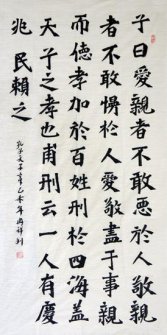 子曰愛親者不敢惡於人敬親
者不敢慢於人愛敬盡于事親
而德孝加於百姓刑於四海蓋
天子之孝也甫刑云一人有慶
兆民賴之